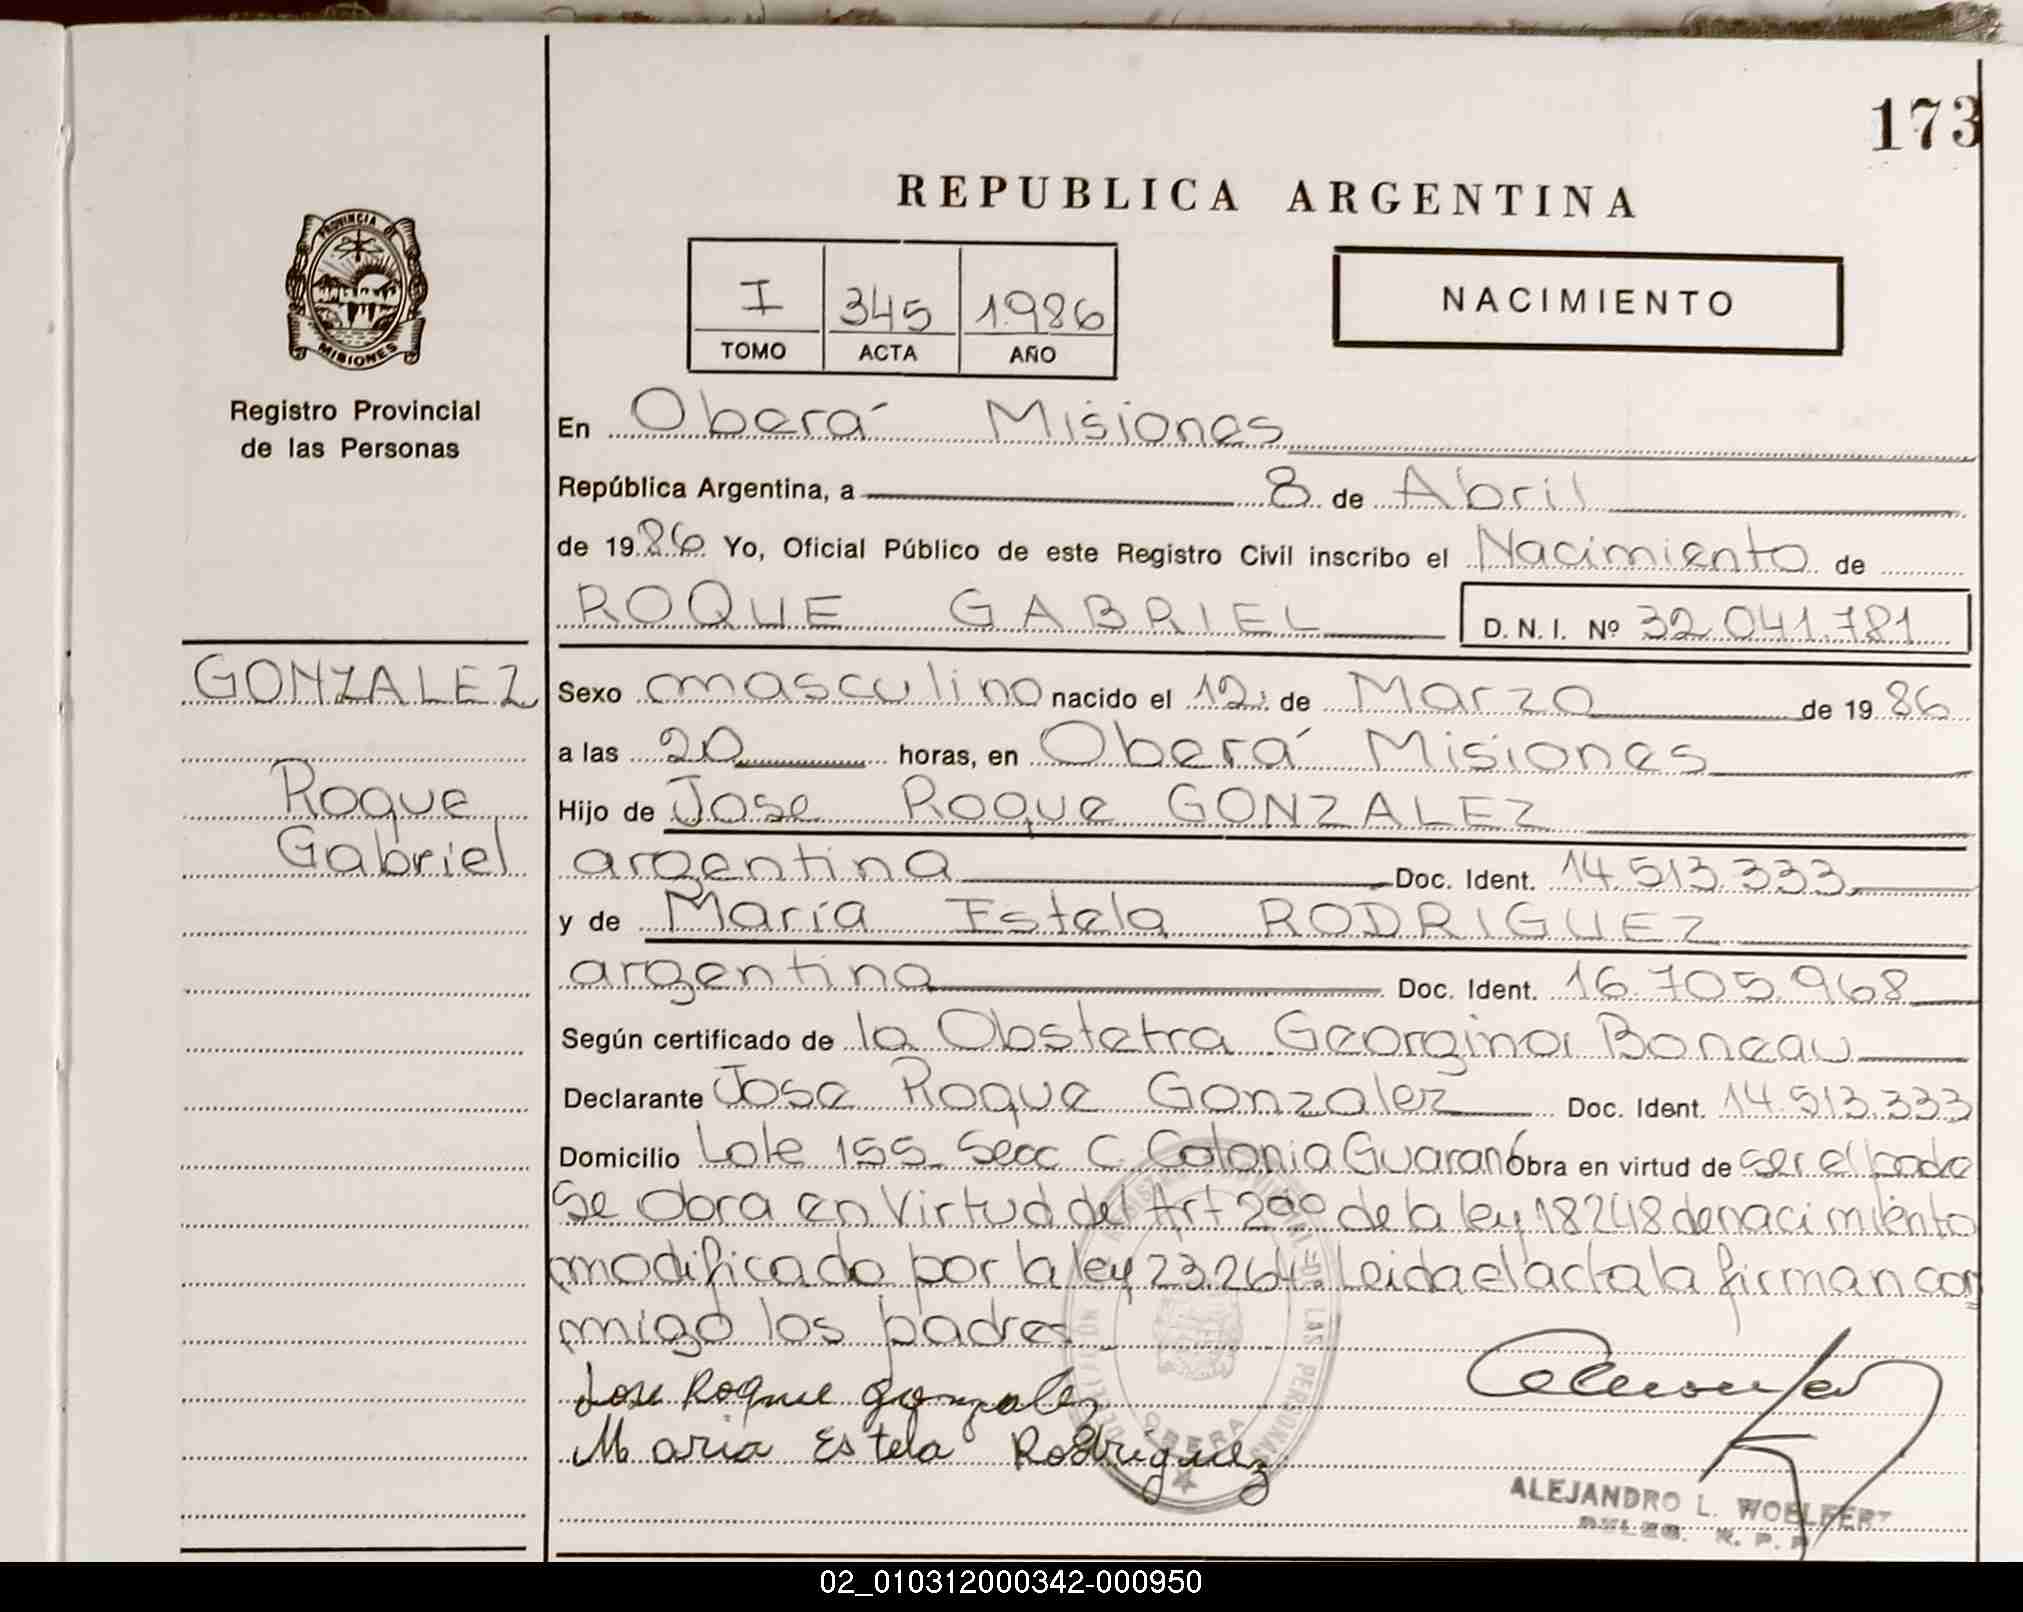 173
REPUBLICA ARGENTINA
PROVINCIA DE
MISIONES
Registro Provincial
de las Personas
I 345 1986
TOMO ACTA AÑO
NACIMIENTO
En Oberá Misiones
República Argentina, a 8 de Abril
de 1986 Yo, Oficial Público de este Registro Civil inscribo el Nacimiento de
ROQUE GABRIEL D.N.I. Nº 32.041.781
GONZALEZ
Roque
Gabriel
Sexo masculino nacido el 12 de Marzo de 1986
a las 20 horas, en Oberá Misiones
Hijo de Jose Roque GONZALEZ
argentina Doc. Ident. 14.513.333
y de María Estela RODRIGUEZ
argentina Doc. Ident. 16.705.968
Según certificado de la Obstetra Georgina Boneau
Declarante Jose Roque Gonzalez Doc. Ident. 14.513.333
Domicilio Lote 155 Secc C Colonia Guaraní Obra en virtud de ser el padre
Se Obra en Virtud del Art 2do de la ley 18248 de nacimiento
modificado por la ley 23.264 Leida el acta la firman con
migo los padres
Jose Roque gonzalez
Maria Estela Rodriguez
OBERA
ALEJANDRO L. WOELFERT
DELEG. R. P. P.
02_010312000342-000950